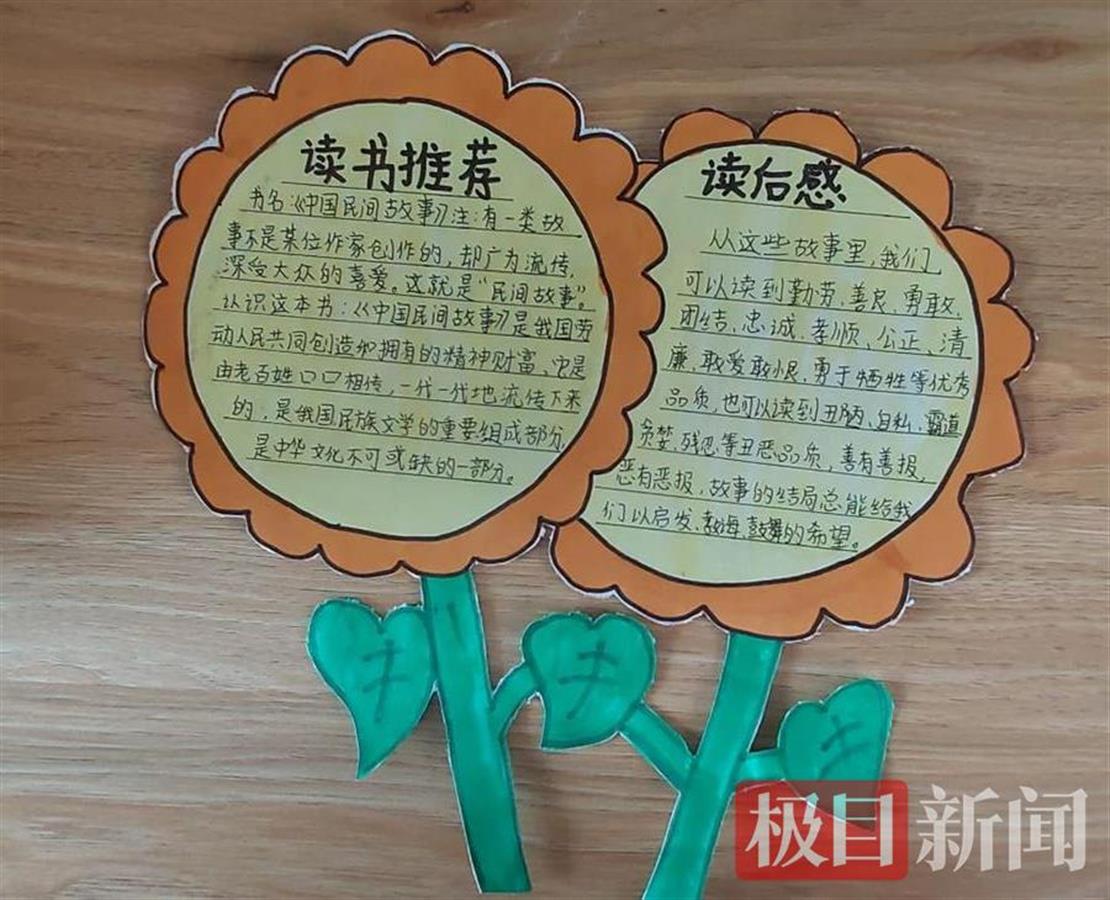 读书推荐
书名:《中国民间故事》注:有一类故
事不是某位作家创作的,却广为流传,
深受大众的喜爱。这就是“民间故事”。
认识这本书:《中国民间故事》是我国劳
动人民共同创造和拥有的精神财富、它是
由老百姓口口相传,一代一代地流传下来
的,是我国民族文学的重要组成部分,
是中华文化不可或缺的一部分。
读后感
从这些故事里,我们
可以读到勤劳、善良、勇敢、
团结、忠诚、孝顺、公正、清
廉、敢爱敢恨、勇于牺牲等优秀
品质,也可以读到丑陋、自私、霸道
贪婪、残忍等丑恶品质,善有善报,
恶有恶报,故事的结局总能给我
们以启发、教诲、鼓舞的希望。
极目新闻